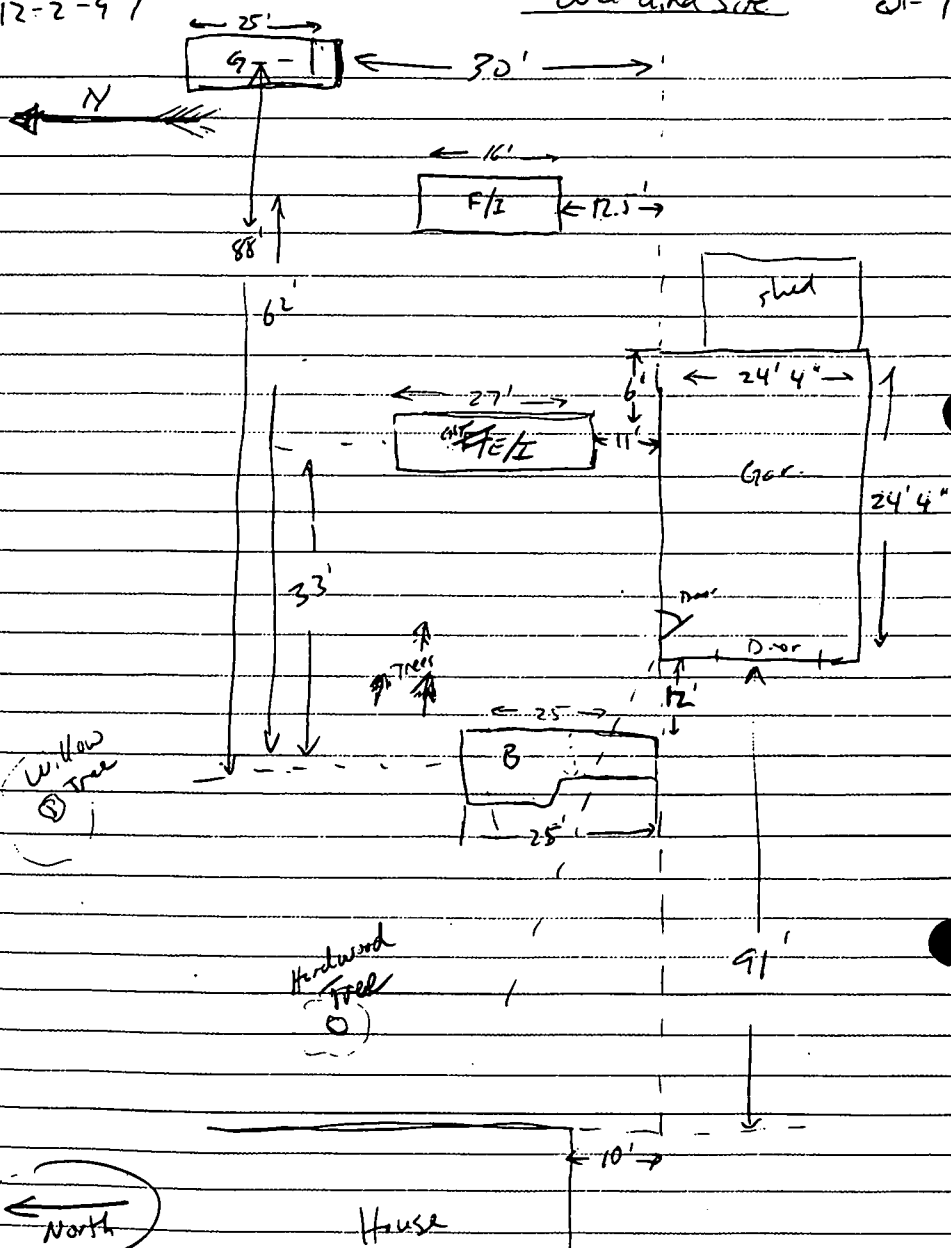 12-2-97
25'
G
30'
N
16'
F/I
12.5'
88'
62'
shed
6'
24' 4"
27'
E/I
11'
Gar.
24' 4"
33'
Door
Door
Trees
12'
25
B
Willow
Tree
25'
91'
Hardwood
Tree
10'
North
House